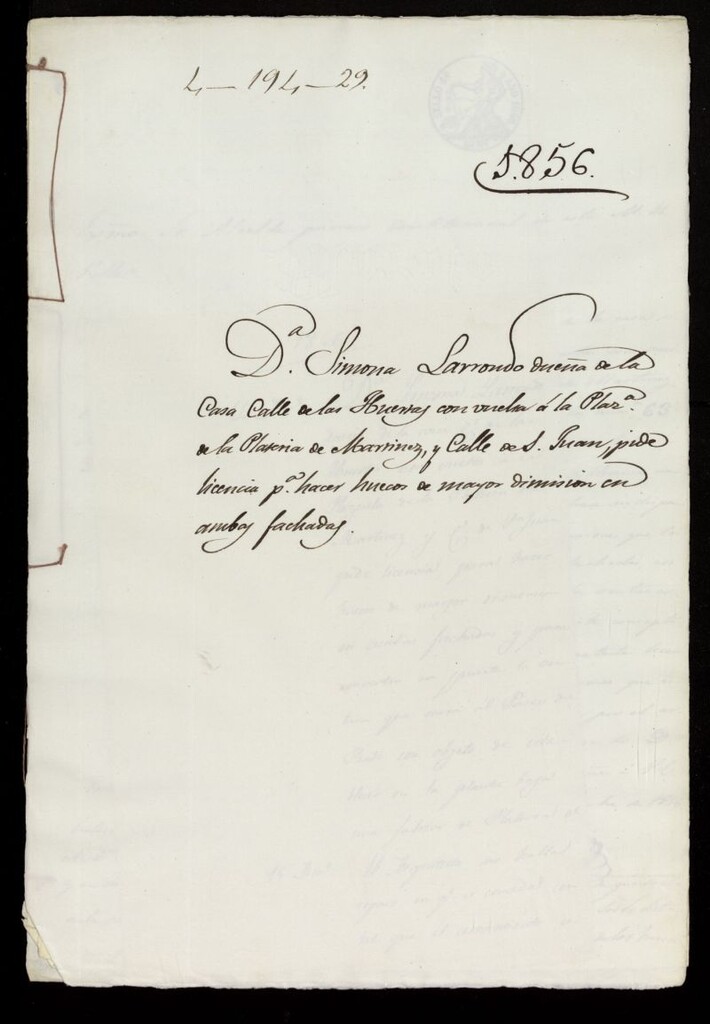 4–194–29.
1.856.
D.ª Simona Larrondo dueña de la
Casa Calle de las Huertas con vuelta á la Plaz.ª
de la Plateria de Martinez, y Calle de S. Juan, pide
licencia p.ª hacer huecos de mayor dimision en
ambas fachadas.